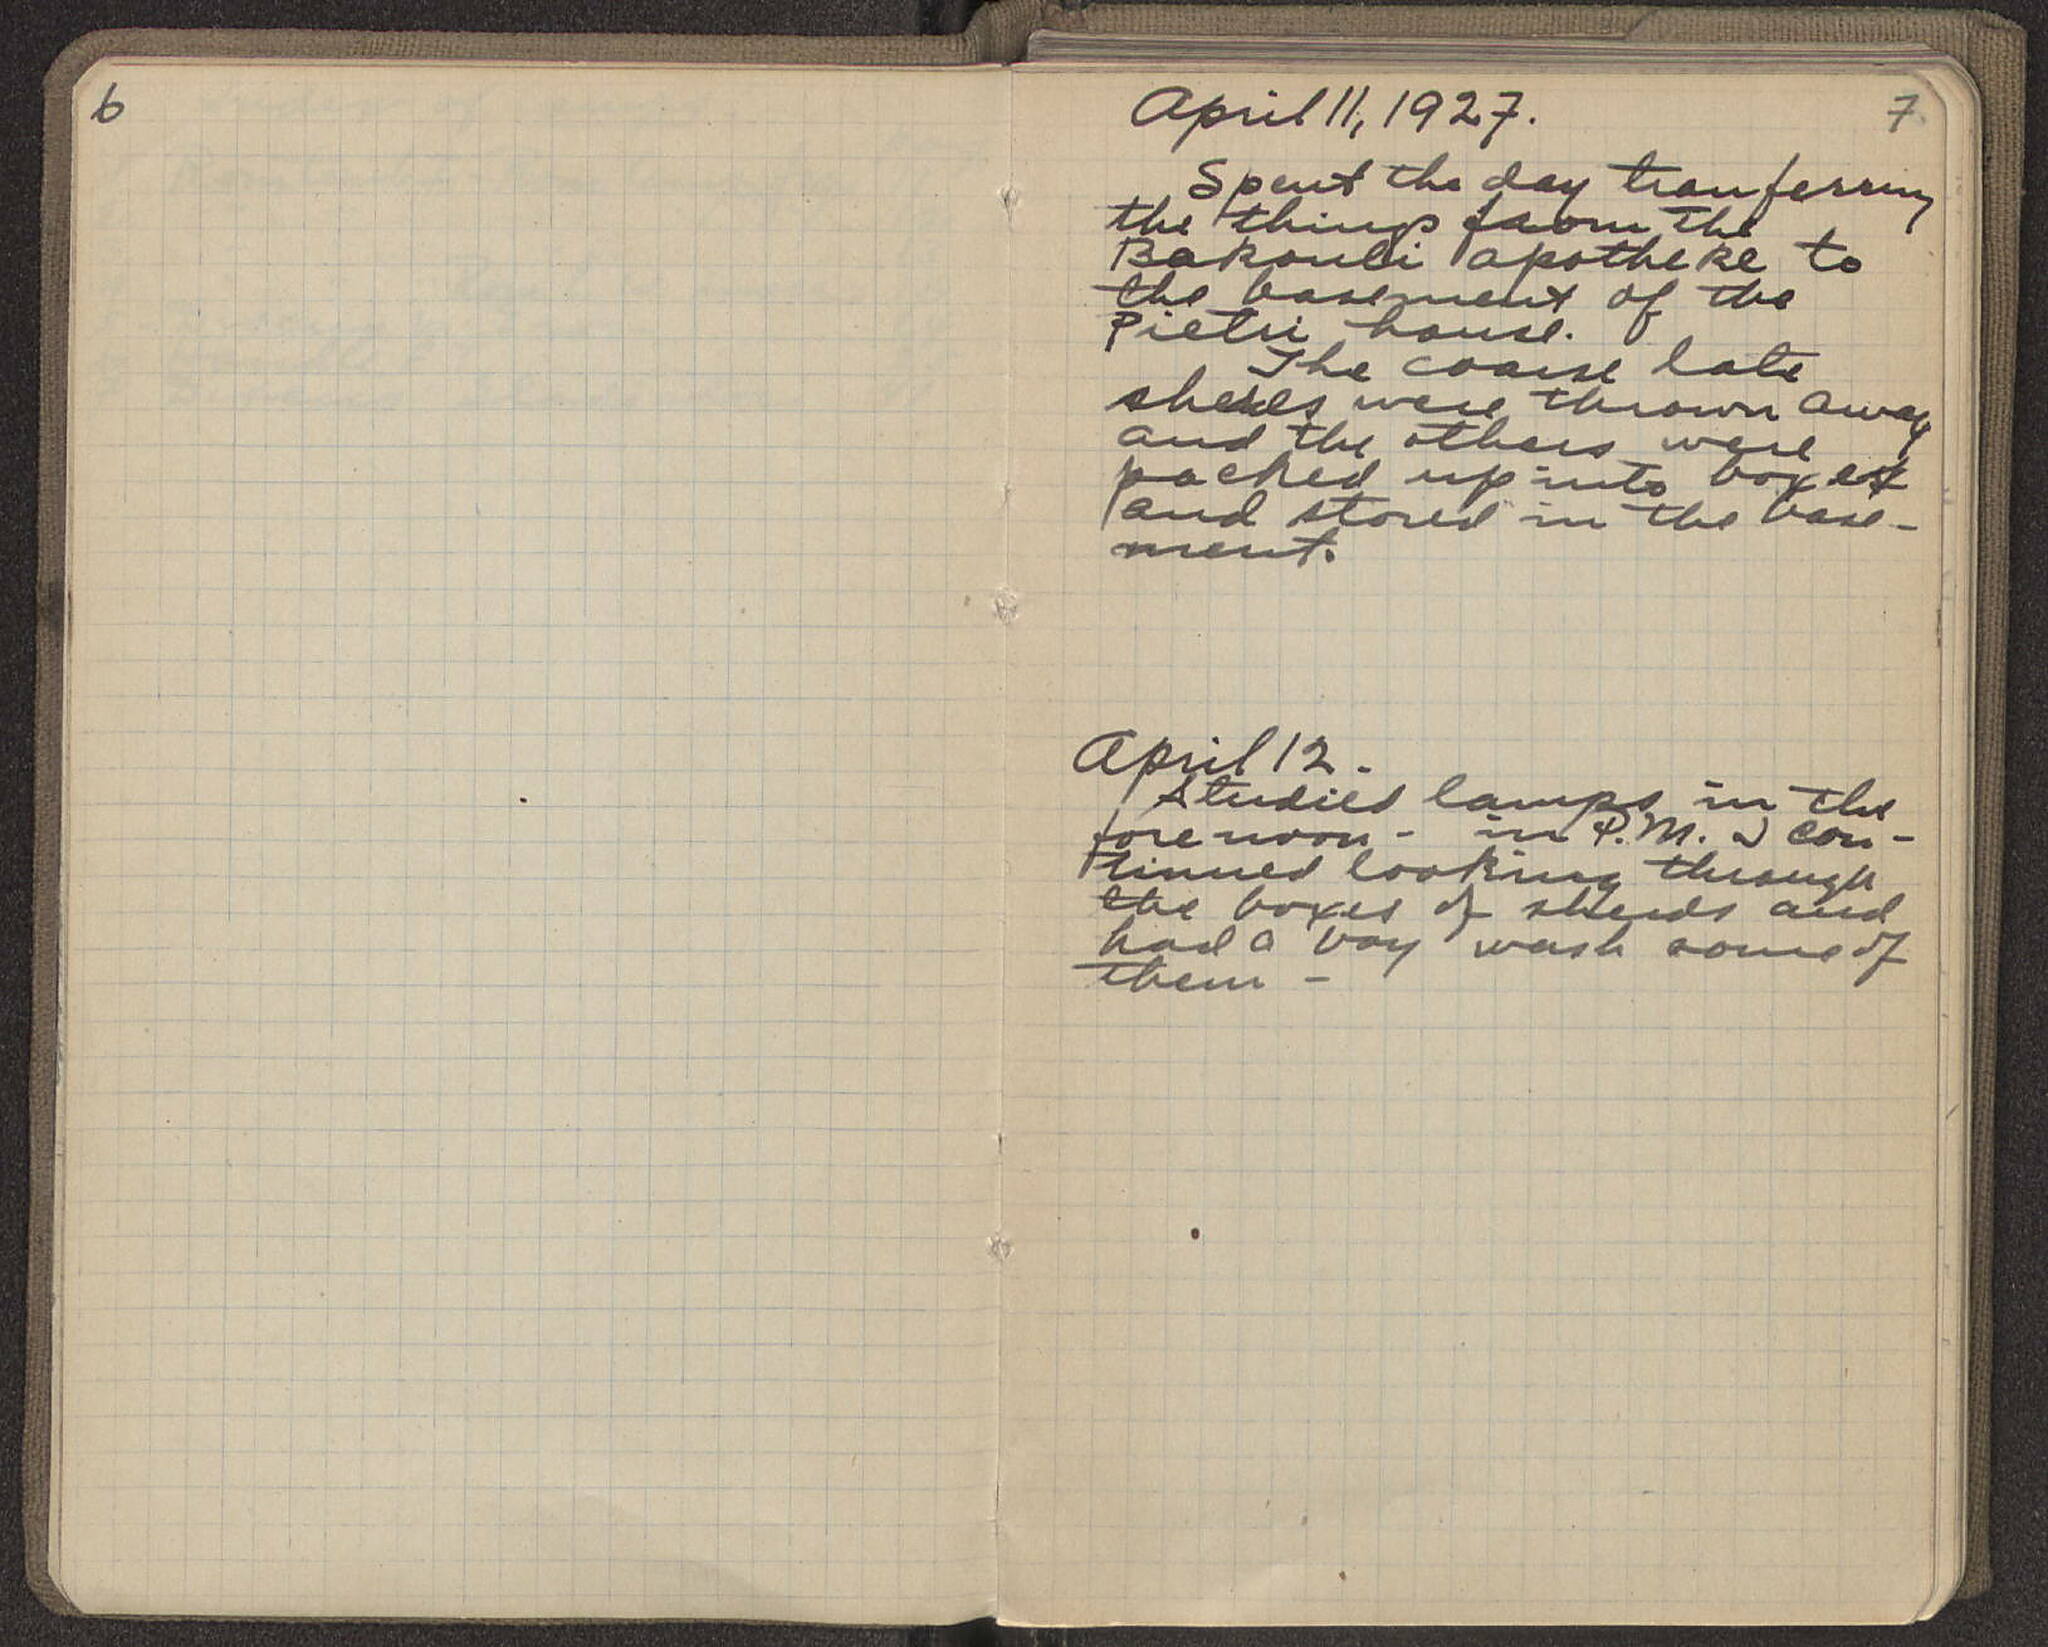 6
7
April 11, 1927.
Spent the day tranferring
the things from the
Bakouli apotheke to
the basement of the
Pietri house.
The coarse late
sherds were thrown away
and the others were
packed up into boxes
and stored in the base-
ment.
April 12.
Studied lamps in the
forenoon - in P.M. I con-
tinued looking through
the boxes of sherds and
had a boy wash some of
them -